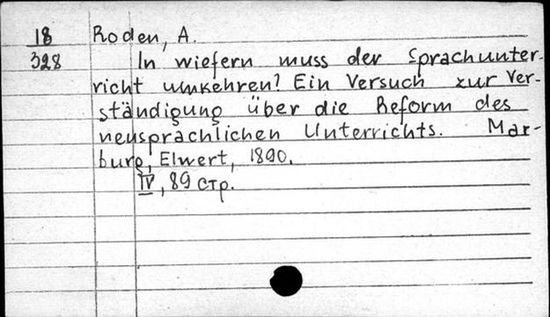 18 Roden, A.
328 In wiefern muss der Sprachunter-
richt umkehren? Ein Versuch zur Ver-
ständigung über die Reform des
neusprachlichen Unterrichts. Mar-
burg, Elwert, 1890.
IV, 89 стр.